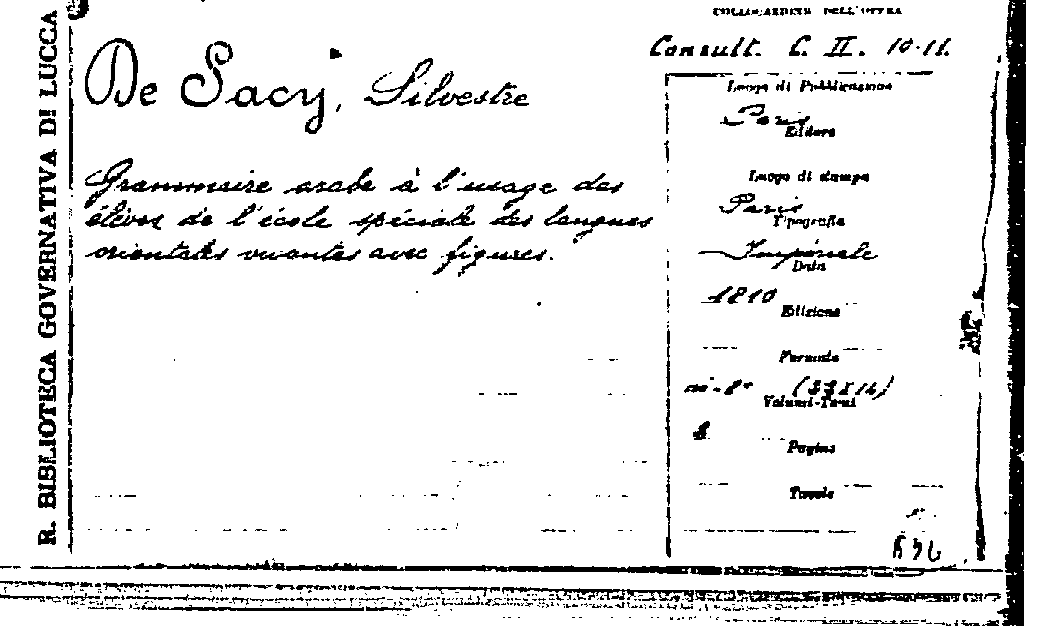 R. BIBLIOTECA GOVERNATIVA DI LUCCA
COLLOCAZIONE DELL'OPERA
Consult. C. II. 10-11.
De Sacy, Silvestre
Grammaire arabe à l'usage des
élèves de l'école spéciale des langues
orientales vivantes avec figures.
Luogo di Pubblicazione
Paris
Editore
Luogo di stampa
Paris
Tipografia
Impériale
Data
1810
Edizione
Formato
in-8°
Volumi-Tomi
Pagine
Tavole